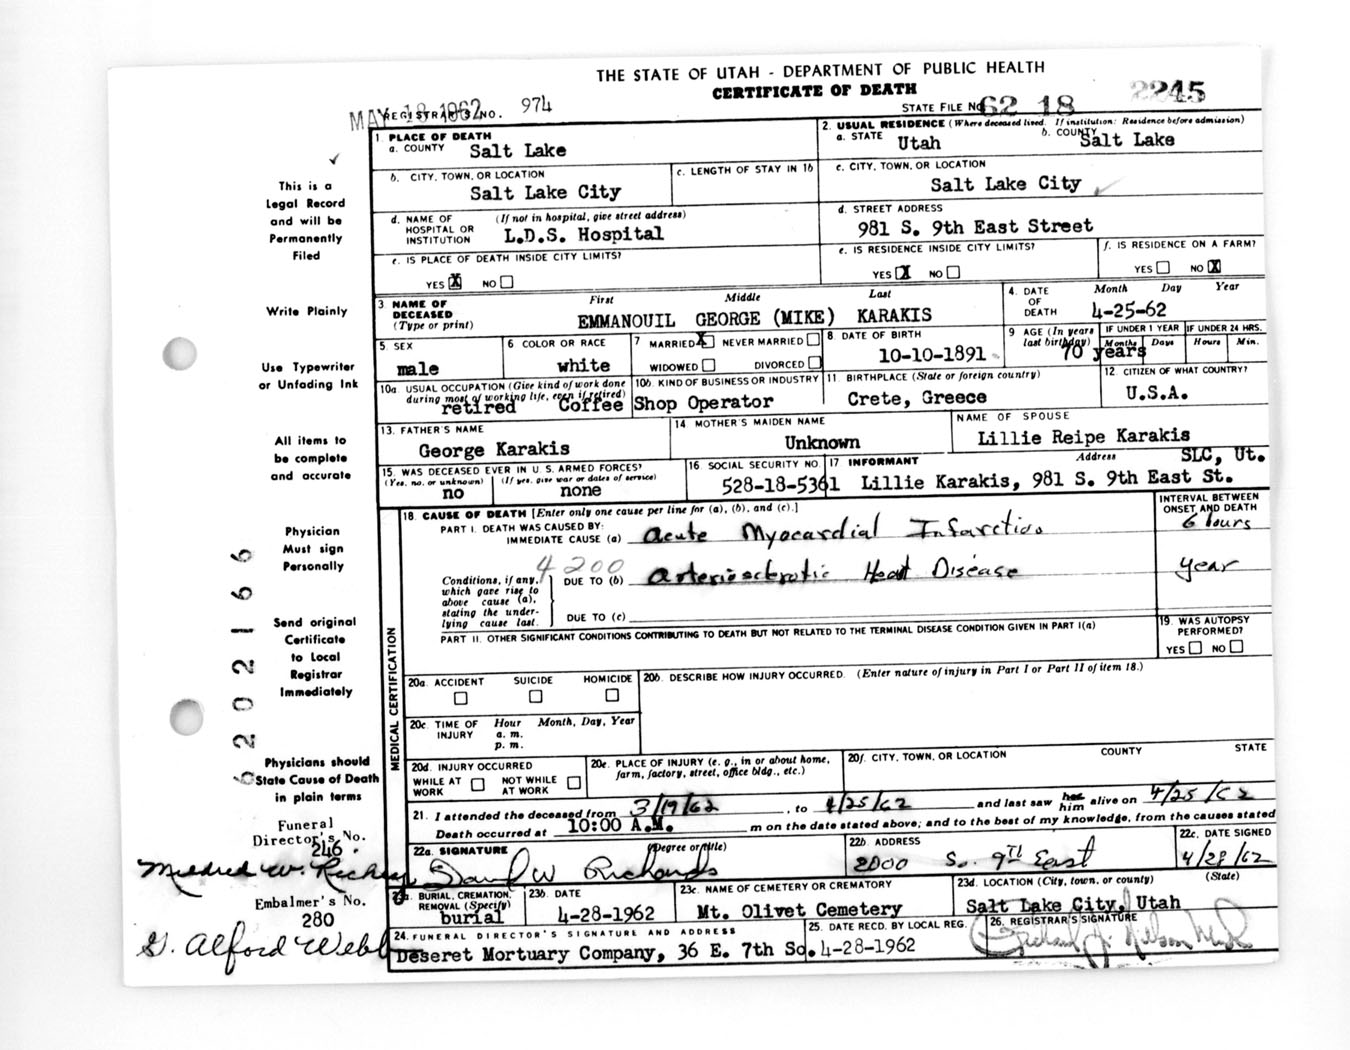 THE STATE OF UTAH - DEPARTMENT OF PUBLIC HEALTH
CERTIFICATE OF DEATH
MAY 18 1962 REGISTRAR'S NO. 974
STATE FILE NO. 62 18 2245
1 PLACE OF DEATH
a. COUNTY Salt Lake
2. USUAL RESIDENCE (Where deceased lived. If institution: Residence before admission)
a. STATE Utah b. COUNTY Salt Lake
b. CITY, TOWN, OR LOCATION
Salt Lake City
c. LENGTH OF STAY IN 1b
c. CITY, TOWN, OR LOCATION
Salt Lake City
d. NAME OF HOSPITAL OR INSTITUTION (If not in hospital, give street address)
L.D.S. Hospital
d. STREET ADDRESS
981 S. 9th East Street
e. IS PLACE OF DEATH INSIDE CITY LIMITS?
YES X NO
e. IS RESIDENCE INSIDE CITY LIMITS?
YES X NO
f. IS RESIDENCE ON A FARM?
YES NO X
3 NAME OF DECEASED (Type or print)
First Middle Last
EMMANOUIL GEORGE (MIKE) KARAKIS
4. DATE OF DEATH Month Day Year
4-25-62
5. SEX
male
6 COLOR OR RACE
white
7 MARRIED X NEVER MARRIED
WIDOWED DIVORCED
8. DATE OF BIRTH
10-10-1891
9 AGE (In years last birthday)
70 years
IF UNDER 1 YEAR Months Days
IF UNDER 24 HRS. Hours Min.
10a. USUAL OCCUPATION (Give kind of work done during most of working life, even if retired)
retired Coffee
10b. KIND OF BUSINESS OR INDUSTRY
Shop Operator
11. BIRTHPLACE (State or foreign country)
Crete, Greece
12 CITIZEN OF WHAT COUNTRY?
U.S.A.
13. FATHER'S NAME
George Karakis
14 MOTHER'S MAIDEN NAME
Unknown
NAME OF SPOUSE
Lillie Reipe Karakis
15. WAS DECEASED EVER IN U. S. ARMED FORCES?
(Yes, no, or unknown) (If yes, give war or dates of service)
no none
16. SOCIAL SECURITY NO.
528-18-5361
17 INFORMANT Address SLC, Ut.
Lillie Karakis, 981 S. 9th East St.
18. CAUSE OF DEATH [Enter only one cause per line for (a), (b), and (c).]
INTERVAL BETWEEN ONSET AND DEATH
PART I. DEATH WAS CAUSED BY:
IMMEDIATE CAUSE (a) Acute Myocardial Infarction 6 hours
4200
Conditions, if any, which gave rise to above cause (a), stating the underlying cause last.
DUE TO (b) Arteriosclerotic Heart Disease year
DUE TO (c)
PART II. OTHER SIGNIFICANT CONDITIONS CONTRIBUTING TO DEATH BUT NOT RELATED TO THE TERMINAL DISEASE CONDITION GIVEN IN PART I(a)
19. WAS AUTOPSY PERFORMED?
YES NO
MEDICAL CERTIFICATION
20a. ACCIDENT SUICIDE HOMICIDE
20b. DESCRIBE HOW INJURY OCCURRED. (Enter nature of injury in Part I or Part II of item 18.)
20c. TIME OF INJURY Hour Month, Day, Year
a. m.
p. m.
20d. INJURY OCCURRED
WHILE AT WORK NOT WHILE AT WORK
20e. PLACE OF INJURY (e. g., in or about home, farm, factory, street, office bldg., etc.)
20f. CITY, TOWN, OR LOCATION COUNTY STATE
21. I attended the deceased from 3/19/62, to 4/25/62 and last saw her him alive on 4/25/62
Death occurred at 10:00 A.M. m on the date stated above; and to the best of my knowledge, from the causes stated
22a. SIGNATURE (Degree or title)
David W Richards
22b. ADDRESS
2000 So. 9TH East
22c. DATE SIGNED
4/28/62
23a. BURIAL, CREMATION, REMOVAL (Specify)
burial
23b. DATE
4-28-1962
23c. NAME OF CEMETERY OR CREMATORY
Mt. Olivet Cemetery
23d. LOCATION (City, town, or county) (State)
Salt Lake City, Utah
24. FUNERAL DIRECTOR'S SIGNATURE AND ADDRESS
Deseret Mortuary Company, 36 E. 7th So.
25. DATE RECD. BY LOCAL REG.
4-28-1962
26. REGISTRAR'S SIGNATURE
This is a
Legal Record
and will be
Permanently
Filed
Write Plainly
Use Typewriter
or Unfading Ink
All items to
be complete
and accurate
Physician
Must sign
Personally
Send original
Certificate
to Local
Registrar
Immediately
Physicians should
State Cause of Death
in plain terms
Funeral
Director's No.
246
Mildred W.
Embalmer's No.
280
G. Alford Webb
202166